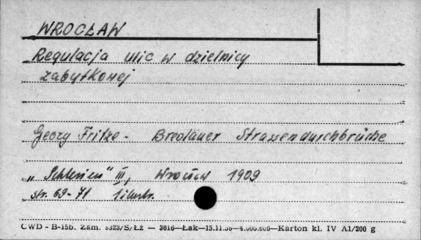 WROCŁAW
Regulacja ulic w dzielnicy
zabytkowej
Georg Fritze - Breslauer Strassendurchbrüche
"Schlesien" III, Wrocław 1909
str. 69-71 ilustr.
CWD - B-15b. Zam. Łak 15.11. Karton kl. IV A1/200 g